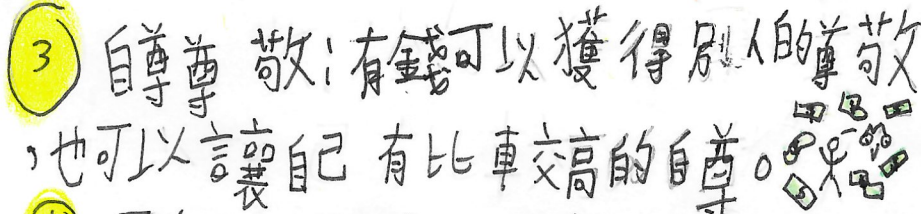 3 自尊尊敬:有錢可以獲得別人的尊敬
,也可以讓自己有比較高的自尊。